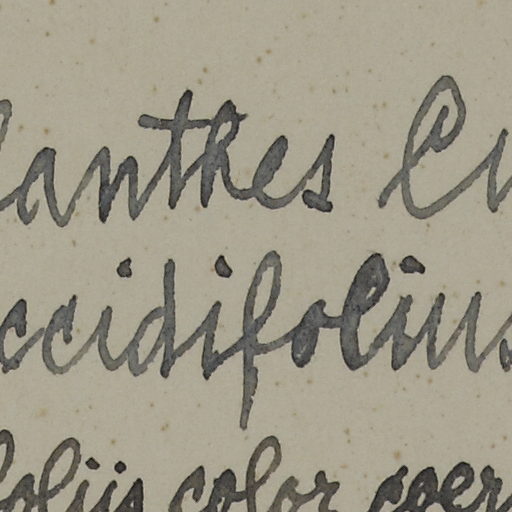 lanthes Cu
ccidifolius
foliis color coer